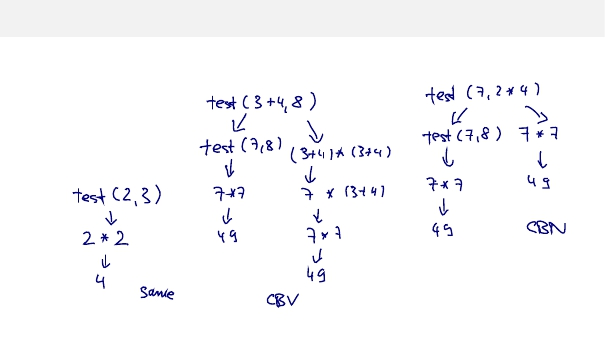 test (2,3)
2 * 2
4
same
test (3+4,8)
test (7,8)
7*7
49
(3+4)* (3+4)
7 * (3+4)
7*7
49
CBV
test (7,2*4)
test (7,8)
7*7
49
7*7
49
CBN